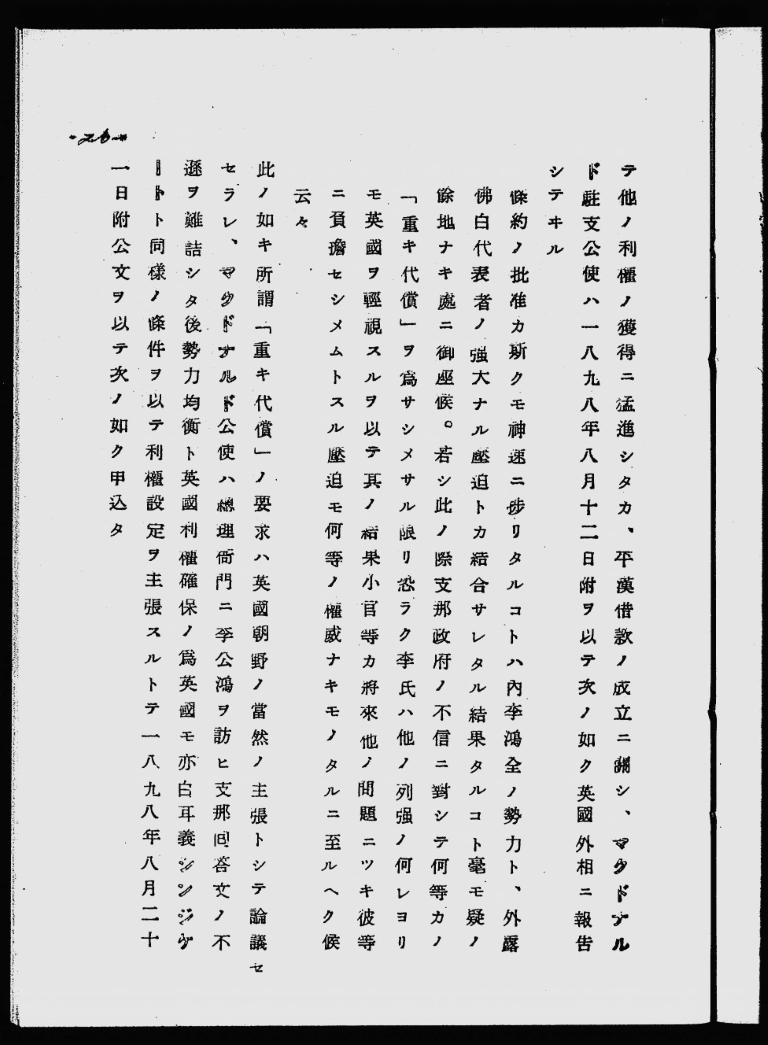 テ他ノ利權ノ獲得ニ猛進シタカ、平漢借款ノ成立ニ關シ、マクドナル
ド駐支公使ハ一八九八年八月十二日附ヲ以テ次ノ如ク英國外相ニ報告
シテヰル
條約ノ批准カ斯クモ神速ニ捗リタルコトハ內李鴻全ノ勢力ト、外露
佛白代表者ノ强大ナル壓迫トカ結合サレタル結果タルコト毫モ疑ノ
餘地ナキ處ニ御座候。若シ此ノ際支那政府ノ不信ニ對シテ何等カノ
「重キ代償」ヲ爲サシメサル限リ恐ラク李氏ハ他ノ列强ノ何レヨリ
モ英國ヲ輕視スルヲ以テ其ノ結果小官等カ將來他ノ問題ニツキ彼等
ニ負擔セシメムトスル壓迫モ何等ノ權威ナキモノタルニ至ルヘク候
云々
此ノ如キ所謂「重キ代償」ノ要求ハ英國朝野ノ當然ノ主張トシテ論議セ
セラレ、マクドナルド公使ハ總理衙門ニ李公鴻ヲ訪ヒ支那回答文ノ不
遜ヲ難詰シタ後勢力均衡ト英國利權確保ノ爲英國モ亦白耳義シンジケ
ートト同樣ノ條件ヲ以テ利權設定ヲ主張スルトテ一八九八年八月二十
一日附公文ヲ以テ次ノ如ク申込タ
-26-